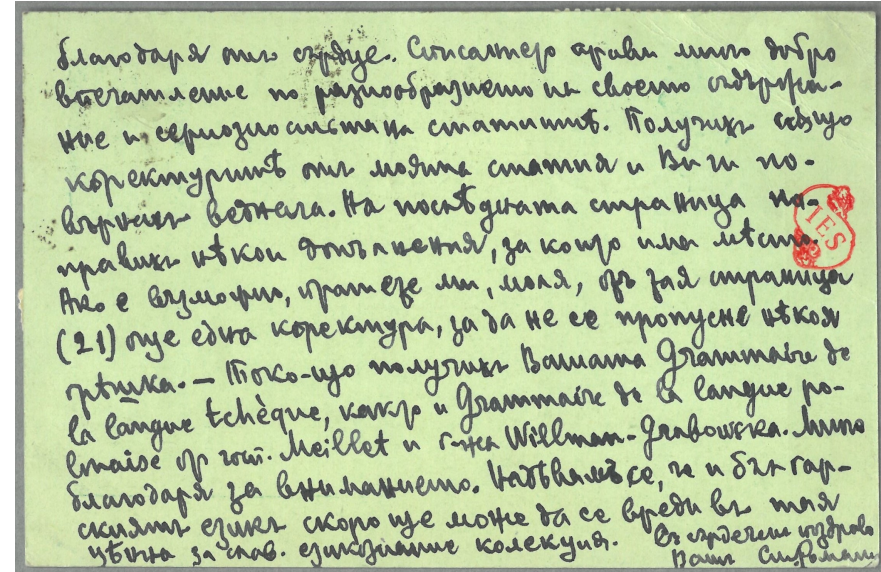 благодаря отъ сърдце. Списанието прави много добро
впечатление по разнообразието на своето съдържа-
ние и сериозностьта на статиитѣ. Получихъ също
коректуритѣ отъ моята статия и Ви ги по-
върнахъ веднага. На послѣдната страница на-
правихъ нѣкои допълнения, за които има мѣсто.
Ако е възможно, пратете ми, моля, отъ тая страница
(21) още една коректура, за да не се пропусне нѣкоя
грѣшка. — Токо-що получихъ Вашата Grammaire de
la langue tchèque, както и Grammaire de la langue po-
lonaise отъ госп. Meillet и г-жа Willman-Grabowska. Много
благодаря за вниманието. Надѣвамъ се, че и българ-
скиятъ езикъ скоро ще може да се вреди въ тая
цѣнна за слав. езикознание колекция. Съ сърдеченъ поздравъ
Вашъ Ст. Романски
IES